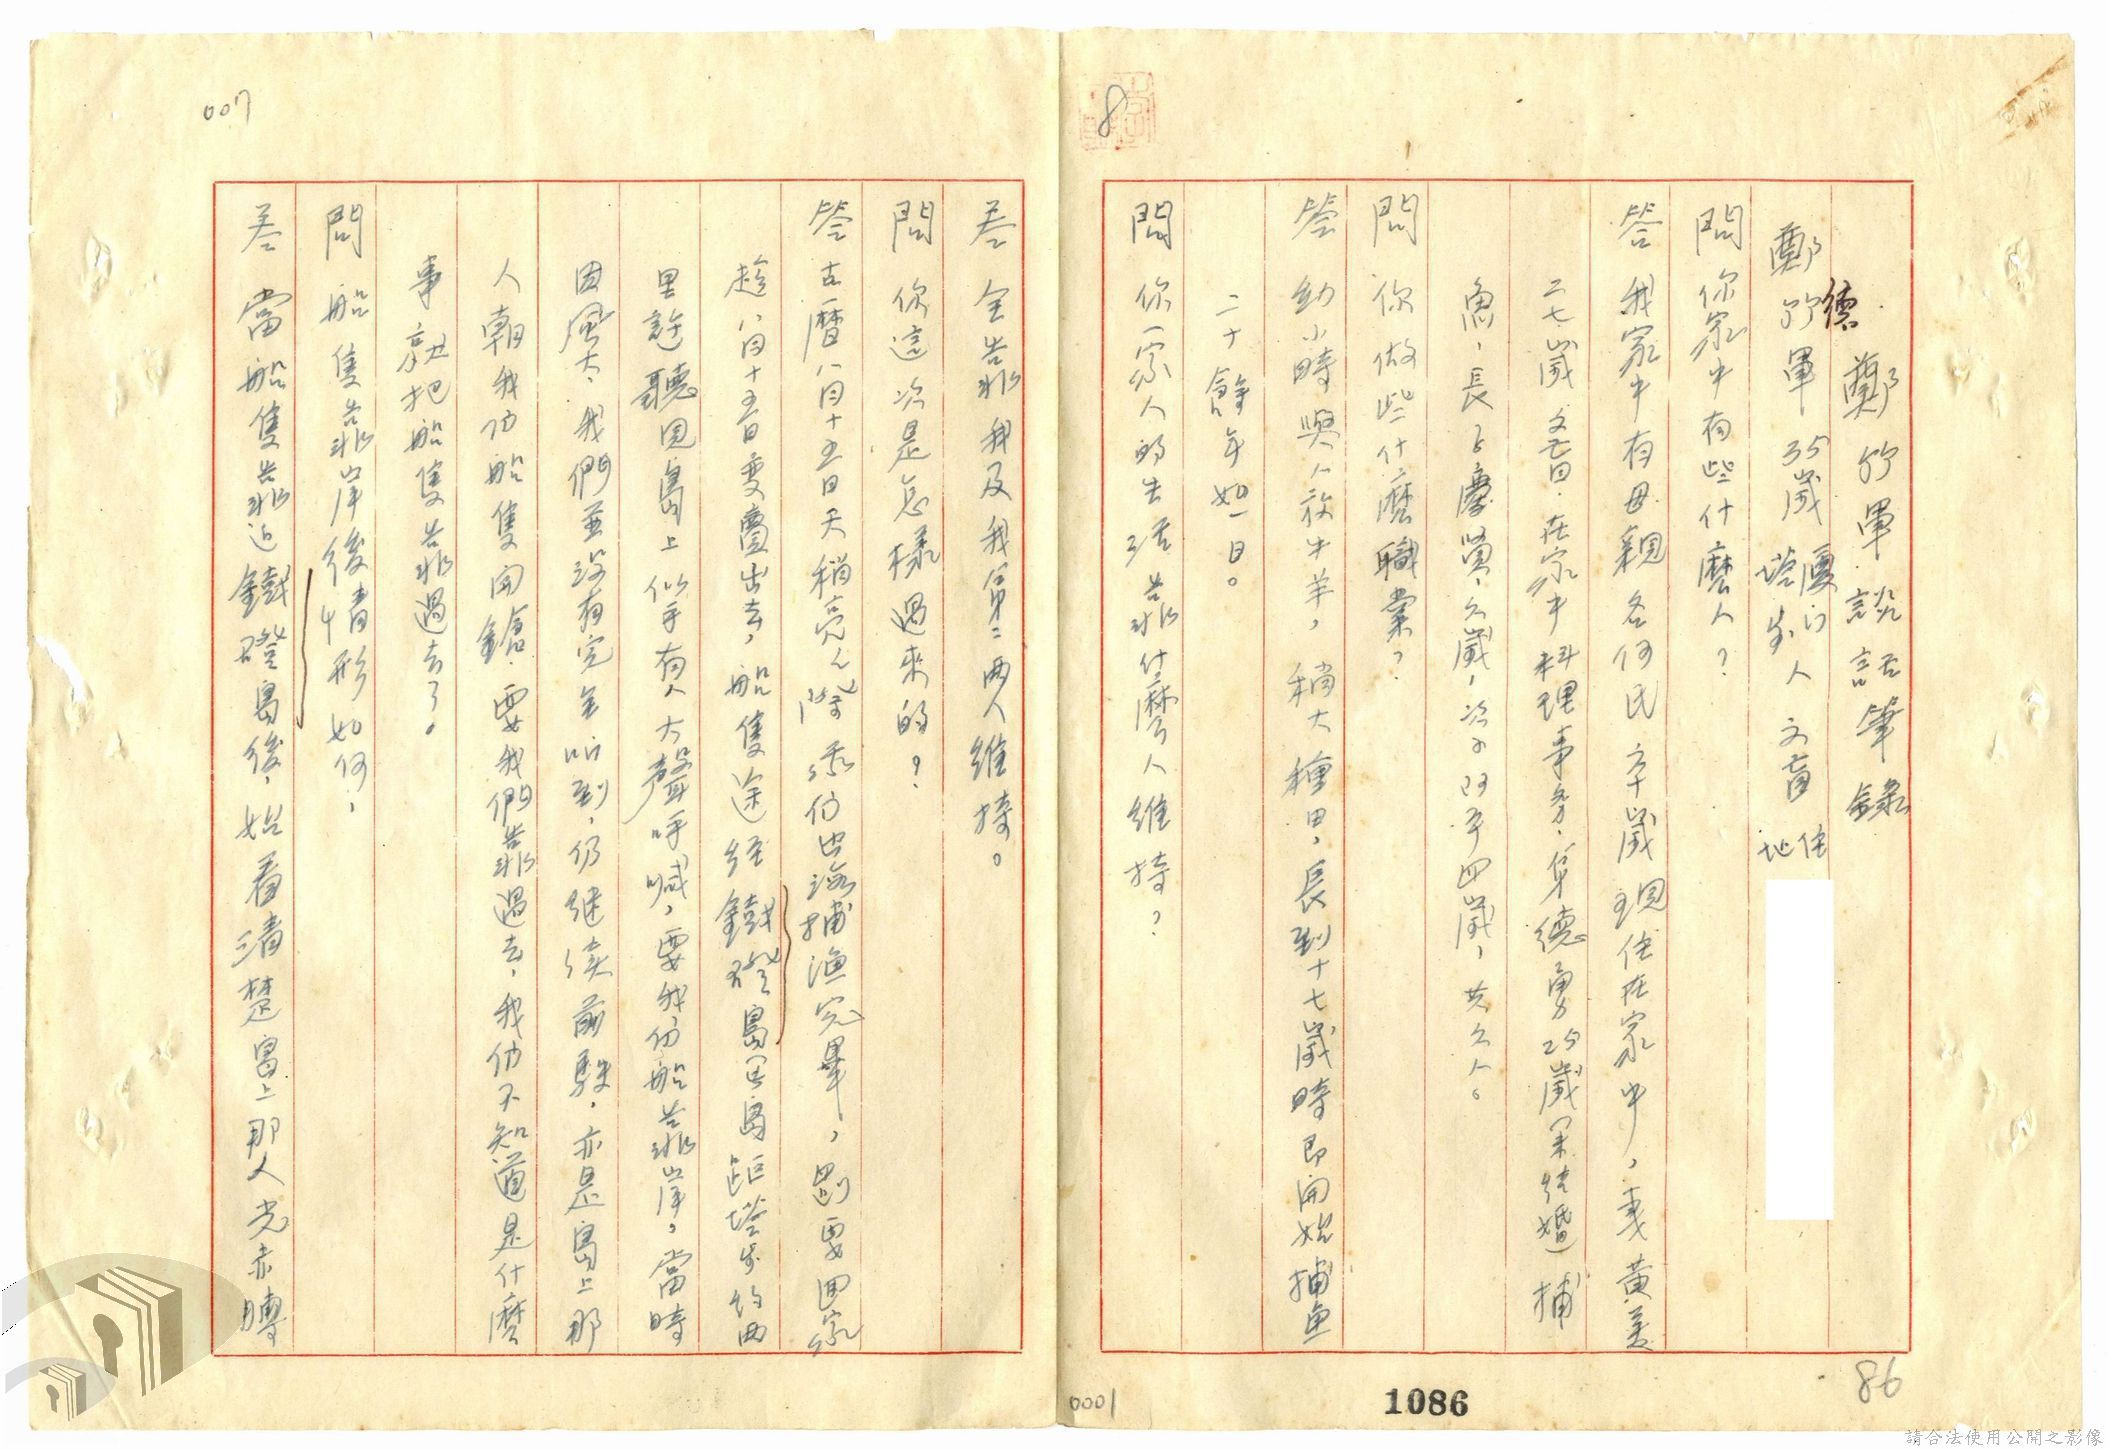 鄭竹軍談話筆錄
德
鄭竹軍 35歲 廈门塔步人 文盲 住地
問 你家中有些什麼人？
答 我家中有母親名何氏 六十歲 現住在家中，妻黃美
二七歲 文盲．在家中料理事务．弟德勇25歲 未結婚 捕
魚，長子慶 六歲，次子阿平四歲，共六人。
問 你做些什麼職業？
答 幼小時與人放牛羊，稍大種田，長到十七歲時即開始捕魚
二十餘年如一日。
問 你一家人的生活靠什麼人維持？
答 全靠我及我弟二兩人維持。
問 你這次是怎樣過來的？
答 古曆八月十五日天稍亮 我们出海捕漁完畢，剛要囬家
趁八月十五日 出去，船隻途經鐵磴島 島距塔步約两
里許聽見島上似乎有人大聲呼喊，要我们船靠岸，當時
因風大，我們並沒有完全听到，仍继续前駛．亦是島上那
人朝我们船隻開鎗．要我們靠過去，我们不知道是什麼
事 就把船隻靠過去了。
問 船隻靠岸後情形如何，
答 當船隻靠近鐵磴島後，始看清楚島上那人光赤膊
007
8
0001
1086
86
請合法使用公開之影像